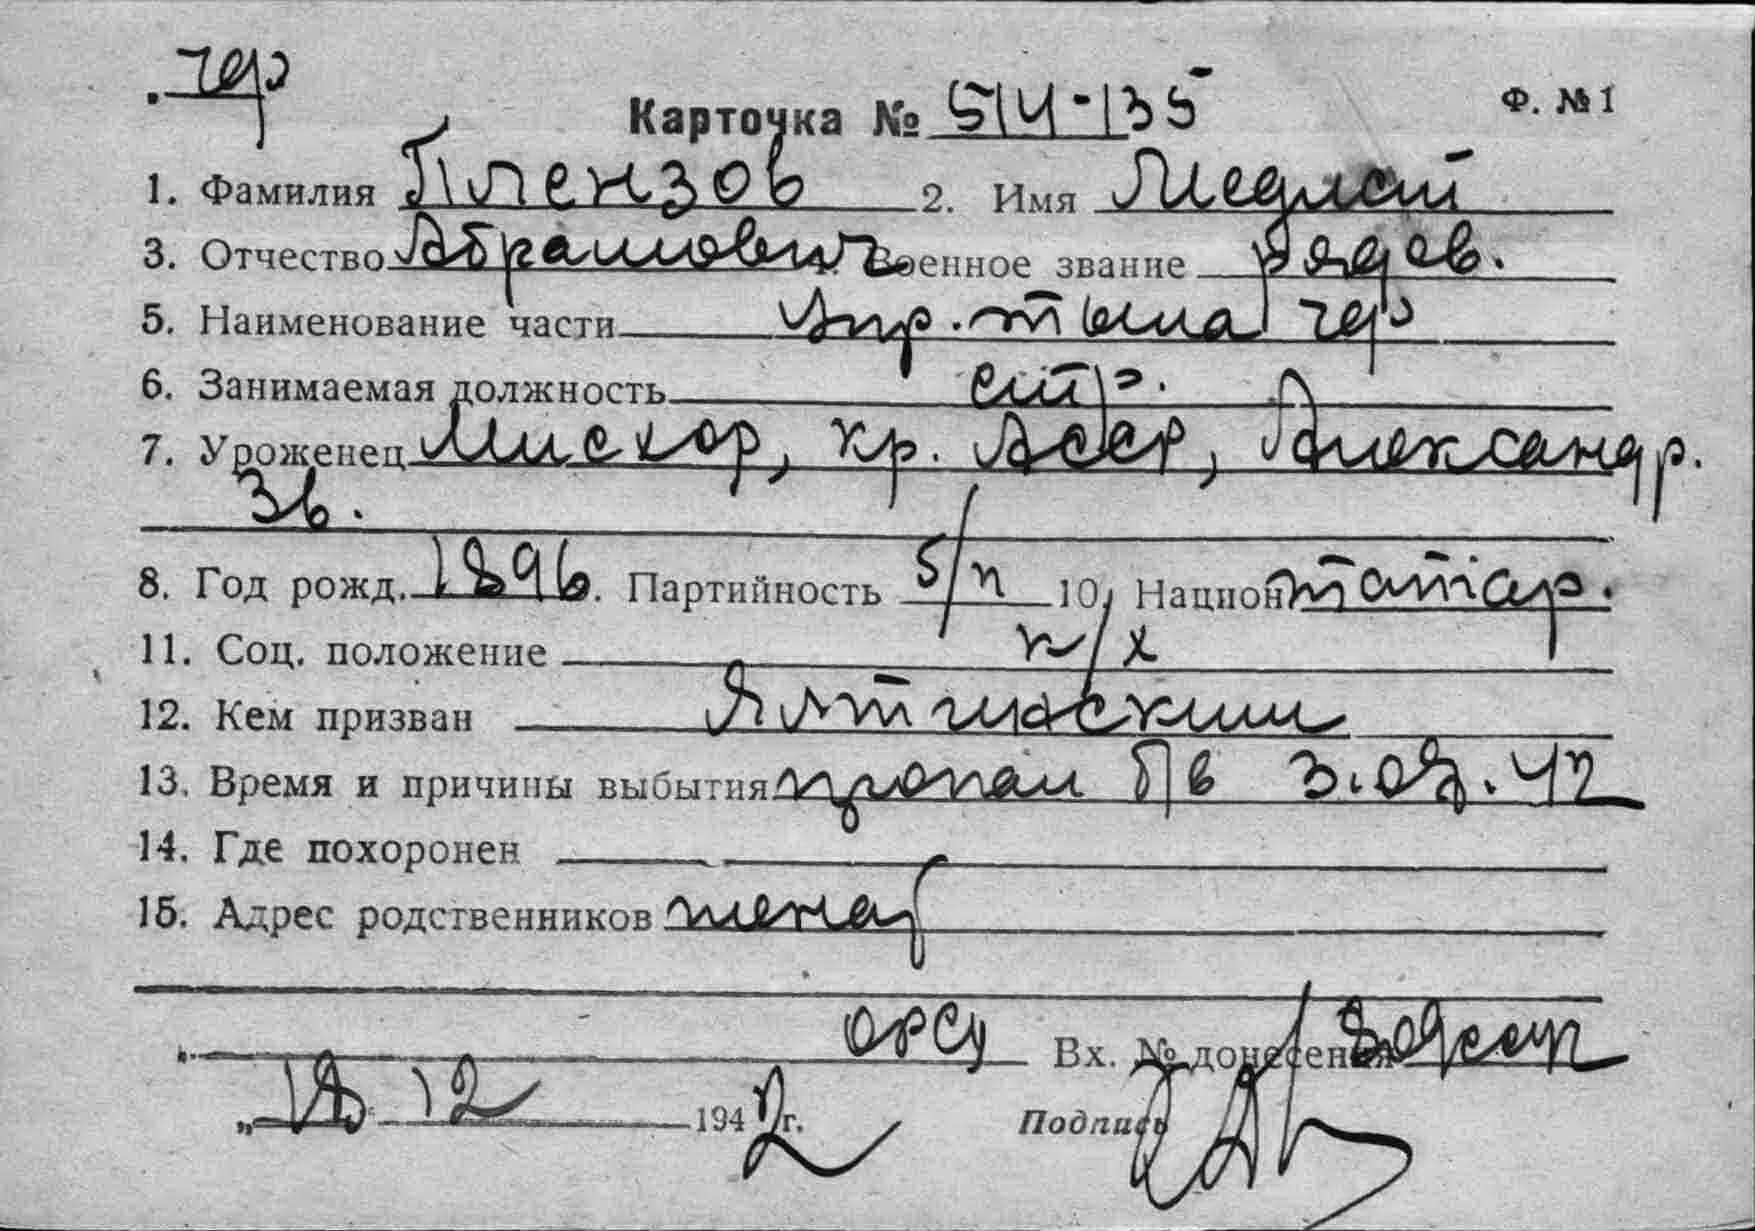 чф
Карточка № 514-135 Ф. №1
1. Фамилия Плензов 2. Имя Медмет
3. Отчество Абрамович 4. Военное звание рядов.
5. Наименование части Упр. тыла чф
6. Занимаемая должность стр.
7. Уроженец Мисхор, кр. АССР, Александр.
36.
8. Год рожд. 1896. Партийность б/п 10. Национ татар.
11. Соц. положение к/х
12. Кем призван Ялтинским
13. Время и причины выбытия пропал б/в 3.07.42
14. Где похоронен
15. Адрес родственников жена
орсу Вх. № донесения
„18 12 1942г. Подпись